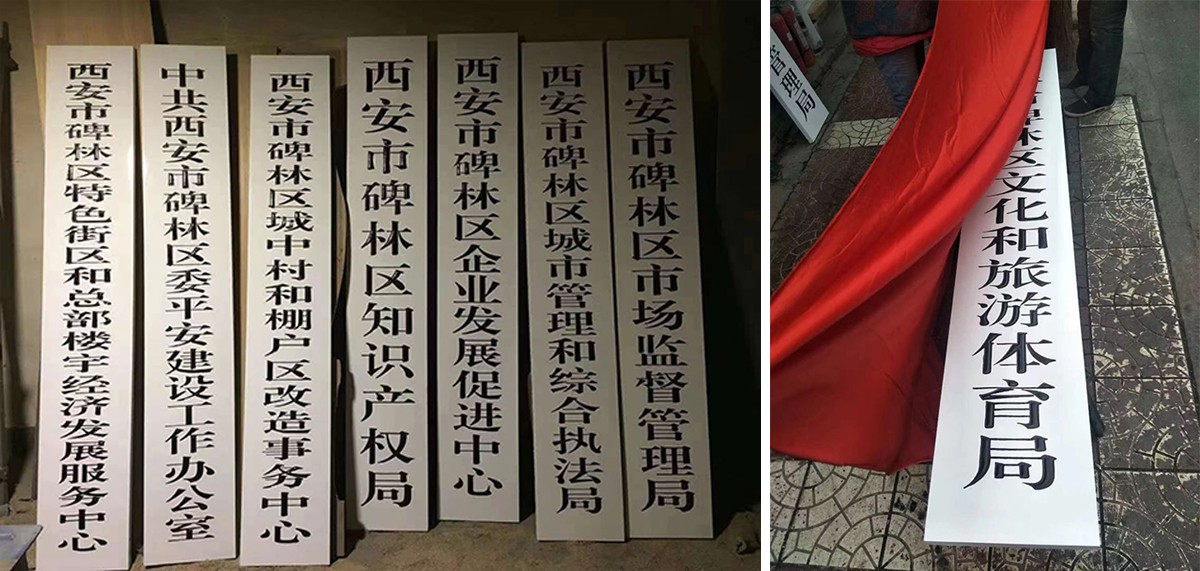 西安市碑林区特色街区和总部楼宇经济发展服务中心
中共西安市碑林区委平安建设工作办公室
西安市碑林区城中村和棚户区改造事务中心
西安市碑林区知识产权局
西安市碑林区企业发展促进中心
西安市碑林区城市管理和综合执法局
西安市碑林区市场监督管理局
管理局
碑林区文化和旅游体育局